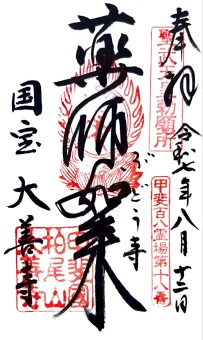 奉拝 令和七年八月十二日
聖武天皇勅願所
甲斐百八霊場第十八番
薬師如来
ぶどう寺
国宝 大善寺
甲斐國
柏尾山
大善寺